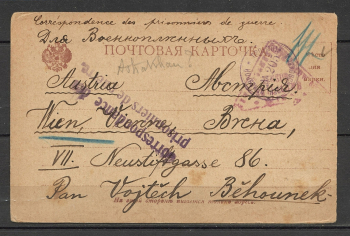 Correspondence des prisonniers de guerre.
Для Военнопленныхъ.
ПОЧТОВАЯ КАРТОЧКА
Astrakhan
Austria Австрия
Wien Вѣна,
VII. Neustiftgasse 86.
Pan Vojtěch Běhounek
Correspondance
prisonniers de
На этой сторонѣ пишется только адресъ.